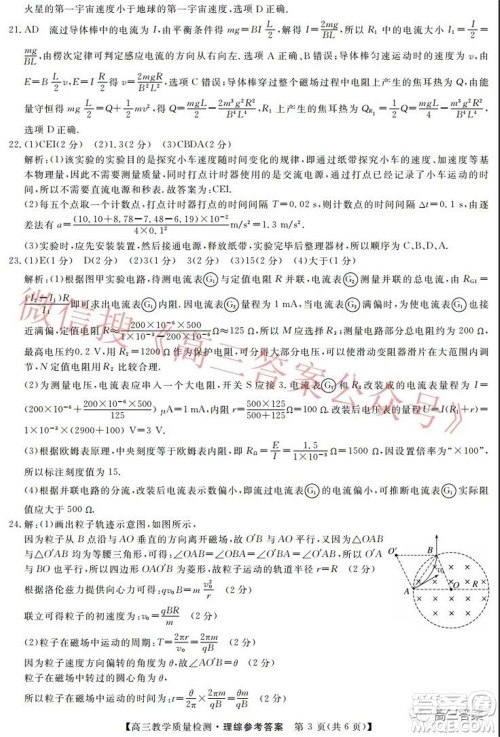 火星的第一宇宙速度小于地球的第一宇宙速度,选项D正确.
21.AD 流过导体棒中的电流为 I,由平衡条件得 mg=BI L/2,解得 I=2mg/BL,所以 R₁ 中的电流大小 I₁=I/2=
mg/BL,由左手定则可判定感应电流的方向从右向左.选项A正确、B错误;导体棒匀速运动时的速度大小为 v,由
E=B L/2 v,I=E/R,解得 v=2mgR/B²L²,选项C错误;导体棒穿过整个磁场过程中电阻上产生的焦耳热为 Q,由能
量守恒得 mg L/2=Q+1/2mv²,得 Q=mgL/2-2m³g²R²/B⁴L⁴,电阻 R₁ 上产生的焦耳热为 Q_R₁=1/2Q=mgL/4-m³g²R²/B⁴L⁴,
选项D正确.
22.(1)CEI(2分) (2)1.3(2分) (3)CBDA(2分)
解析:(1)该实验的实验目的是探究小车速度随时间变化的规律,也就是通过纸带探究小车的速度、加速度等基
本物理量,因此不需要质量,同时打点计时器需要使用的是交流电源,通过打点已经记录了小车运动时间,所以
不需要秒表.故答案为:CEI.
(2)每五个点取一个计数点,打点计时器打点的时间间隔 T=0.02 s,则每两个计数点的时间间隔 Δt=0.1 s,由逐
差法有 a=(10.10+8.78-7.48-6.19)×10⁻²/4×0.1² m/s²=1.3 m/s².
(3)实验时,应先安装装置,然后进行实验,最后整理实验器材,所以次序为 C、B、D、A.
23.(1)E(1分) D(2分) (2)3(2分) (3)15(2分) (4)500(2分)
解析:(1)根据图甲实验电路,待测电流表G₁与电阻 R 并联后,由电流表G₂测量并联的总电流,由 R_G=
(I₂-I₁)R/I₁即可求出电流表G₁的内阻.电流表G₂的量程为 1 mA,当电流表G₁满偏时,为使电流表G₂也接
近满偏,定值电阻 R=200×10⁻⁶×500/(1-200×10⁻⁶) Ω≈125 Ω,所以 M 应选择 R₃;测量电路部分总电阻约为 200 Ω,
最高电压约 0.2 V,用 R₂=1200 Ω 作为保护电阻,可分担大部分电压,可以使滑动变阻器滑片在大范围内调
节,N 定值电阻用 R₂ 比较合理.
(2)为测量电压,电流表应串入一个大电阻,因此 S 接 3.电流表G₁与定值电阻 R₃ 改装成的电流表量程为 I=
1 mA,内阻 r=500×125/500+125 Ω=100 Ω,改装后的电压表的量程 U=I(R₁+r)=
1×10⁻³(2900+100)V=3 V.
(3)根据欧姆表原理,中央刻度等于欧姆表内阻,即 R_Ω=E/I=1.5/1×10⁻³ Ω=1500 Ω,因换挡旋钮指向“×100”,
所以标注刻度值为 15.
(4)根据并联电路的分流,改装成电流表后,流过电流表G₁的电流偏小,可推断电流表G₁实际阻
值应大于 500 Ω.
24.解:(1)画出粒子轨迹示意图,如图所示,
因为粒子从 B 点沿垂直于直径 AO 的方向离开磁场,故 O′B 与 AO 平行,又因为△OAB
与△O′AB 均为等腰三角形,可得:∠OAB=∠OBA=∠O′BA=∠O′AB,所以 O′A 与
BO 也平行,因此四边形 O′AOB 为菱形,粒子轨迹圆的半径 r₀=R (2分)
根据洛伦兹力提供向心力可得:qv₀B=mv₀²/r₀ (2分)
联立可得粒子的初速度:v₀=qBR/m (2分)
(2)粒子在磁场中运动的周期:T=2πr/v₀=2πm/qB (2分)
因为粒子速度方向偏转的角度为 θ,
故粒子在磁场中转过的圆心角为 θ,
所以粒子在磁场中运动的时间:t=θ/2π·2πm/qB=θm/qB (2分)
O′
B
A
O
R
v₀
高三教学质量检测·理综参考答案 第 3 页(共 6 页)
微信搜《高三答案公众号》
高三答案